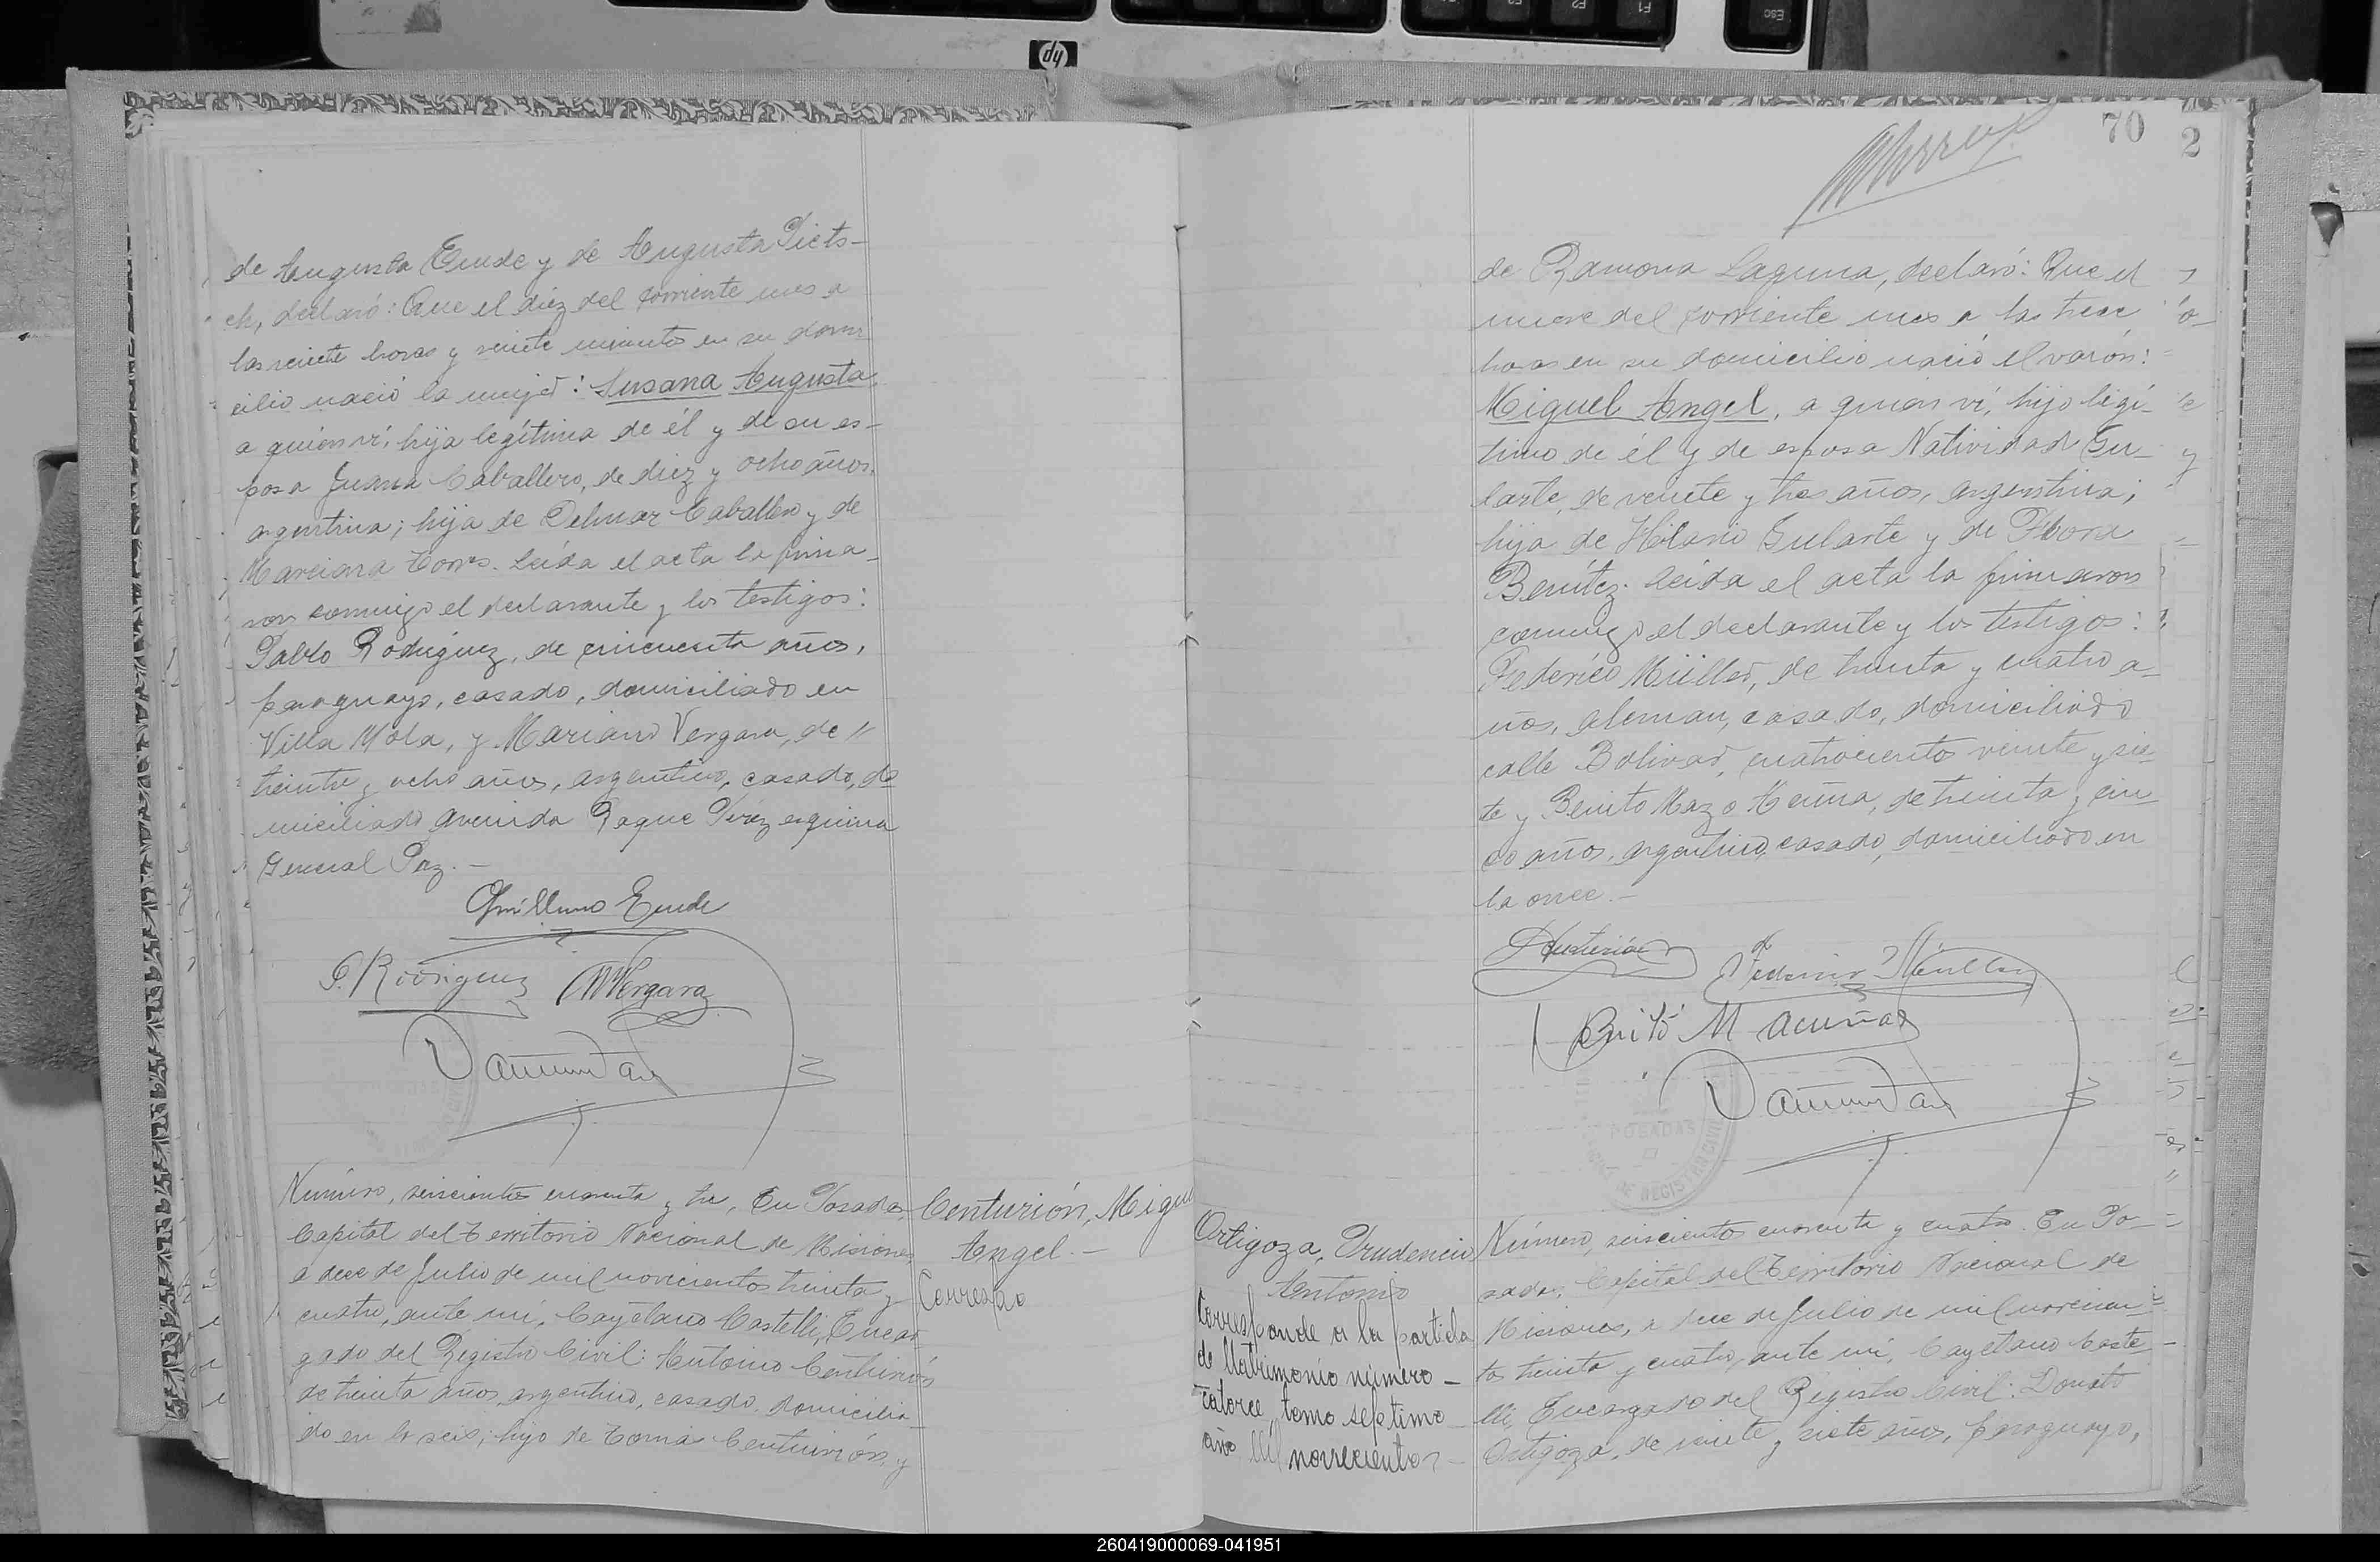 de Augusto Emde y de Augusta Piets-
ch, declaró: Que el diez del corriente mes a
las veinte horas y veinte minutos en su domi-
cilio nació la mujer: Susana Augusta,
a quién ví, hija legítima de él y de su es-
posa Juana Caballero, de diez y ocho años,
argentina; hija de Delmar Caballero y de
Marciana Torres. Leída el acta la firma-
ron conmigo el declarante y los testigos:
Pablo Rodríguez, de cincuenta años,
paraguayo, casado, domiciliado en
Villa Mola, y Mariano Vergara, de "
treinta y ocho años, argentino, casado, do
miciliado avenida Roque Pérez esquina
General Paz.-
Guillermo Emde
P. Rodriguez MVergara
Número, seiscientos cuarenta y tres, En Posadas,
Capital del Territorio Nacional de Misiones,
a doce de Julio de mil novecientos treinta y
cuatro, ante mí, Cayetano Castelli, Encar
gado del Registro Civil: Antonio Centurión
de treinta años, argentino, casado, domicilia-
do en la seis; hijo de Tomás Centurión y
Centurión, Miguel
Angel.-
Correspo
70
2
de Ramona Laguna, declaró: Que el
nueve del corriente mes a las trece
horas en su domicilio nació el varón:
Miguel Angel, a quien ví, hijo legí-
timo de él y de esposa Natividad Gu-
larte, de veinte y tres años, argentina;
hija de Hilario Gularte y de Flora
Benítez. Leída el acta la firmaron
conmigo el declarante y los testigos:
Federico Müller, de treinta y cuatro a-
ños, aleman, casado, domiciliado
calle Bolivar, cuatrocientos veinte y sie
te y Benito Mazo Acuña, de treinta y cin
co años, argentino, casado, domiciliado en
la once.-
ACenturión
Federico Müller
Benito M Acuña
POSADAS
DE REGISTRO CIVIL
Ortigoza, Prudencio
Antonio
Corresponde a la partida
de Matrimonio número-
catorce tomo séptimo
año Mil novecientos-
Número, seiscientos cuarenta y cuatro. En Po-
sadas, Capital del Territorio Nacional de
Misiones, a doce de Julio de mil novecien
tos treinta y cuatro, ante mí, Cayetano Caste
lli, Encargado del Registro Civil: Donato
Ortigoza, de veinte y siete años, paraguayo,
260419000069-041951